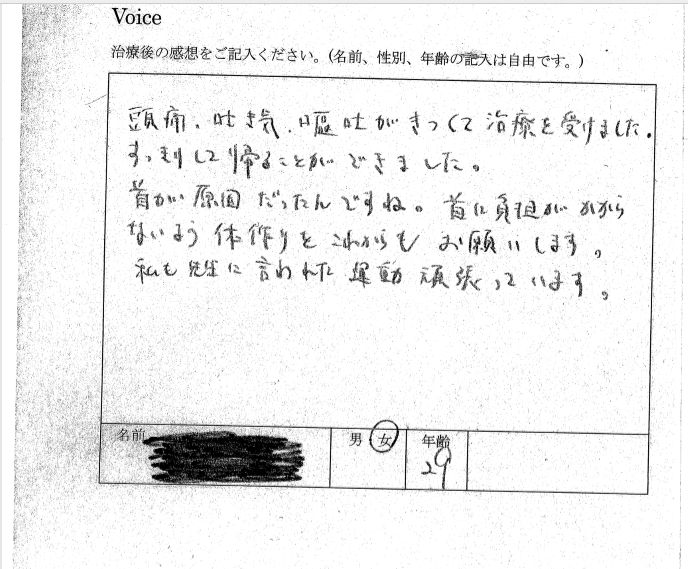 Voice
治療後の感想をご記入ください。(名前、性別、年齢の記入は自由です。)
頭痛、吐き気、嘔吐がきつくて治療を受けました。
すっきりして帰ることができました。
首が原因だったんですね。首に負担がかから
ないよう体作りをこれからもお願いします。
私も先生に言われた運動頑張っています。
名前 男・女 年齢
29